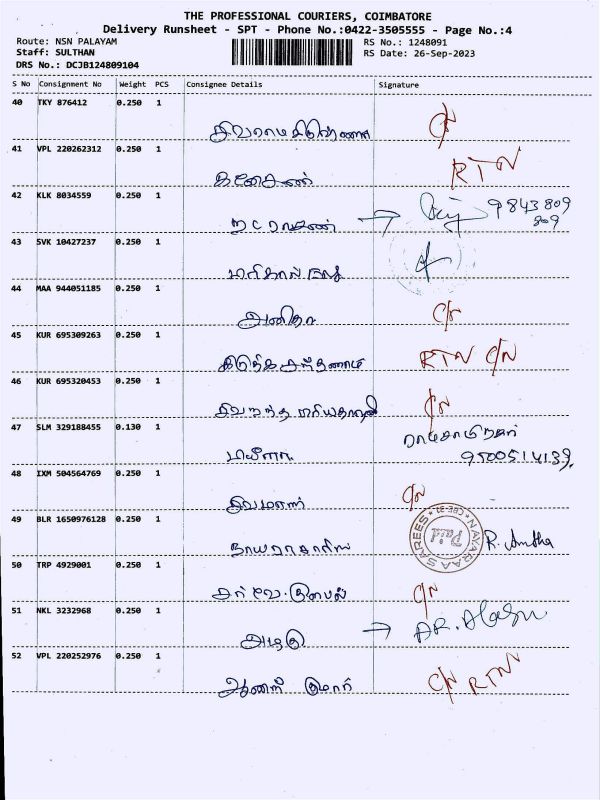 THE PROFESSIONAL COURIERS, COIMBATORE
Delivery Runsheet - SPT - Phone No.:0422-3505555 - Page No.:4
Route: NSN PALAYAM
RS No.: 1248091
Staff: SULTHAN
RS Date: 26-Sep-2023
DRS No.: DCJB124809104
S No Consignment No Weight PCS Consignee Details Signature
40 TKY 876412 0.250 1
C/N
41 VPL 220262312 0.250 1
RTN
கணேசன்
42 KLK 8034559 0.250 1
9843809
809
43 SVK 10427237 0.250 1
44 MAA 944051185 0.250 1
அனிதா C/N
45 KUR 695309263 0.250 1
RTN C/N
46 KUR 695320453 0.250 1
C/N
47 SLM 329188455 0.130 1
9500514139
48 IXM 504564769 0.250 1
C/N
49 BLR 1650976128 0.250 1
NAYARAA SAREES CBE-31
R. Anitha
50 TRP 4929001 0.250 1
C/N
51 NKL 3232968 0.250 1
அழகு → AR. Alagu
52 VPL 220252976 0.250 1
குமார் C/N RTN